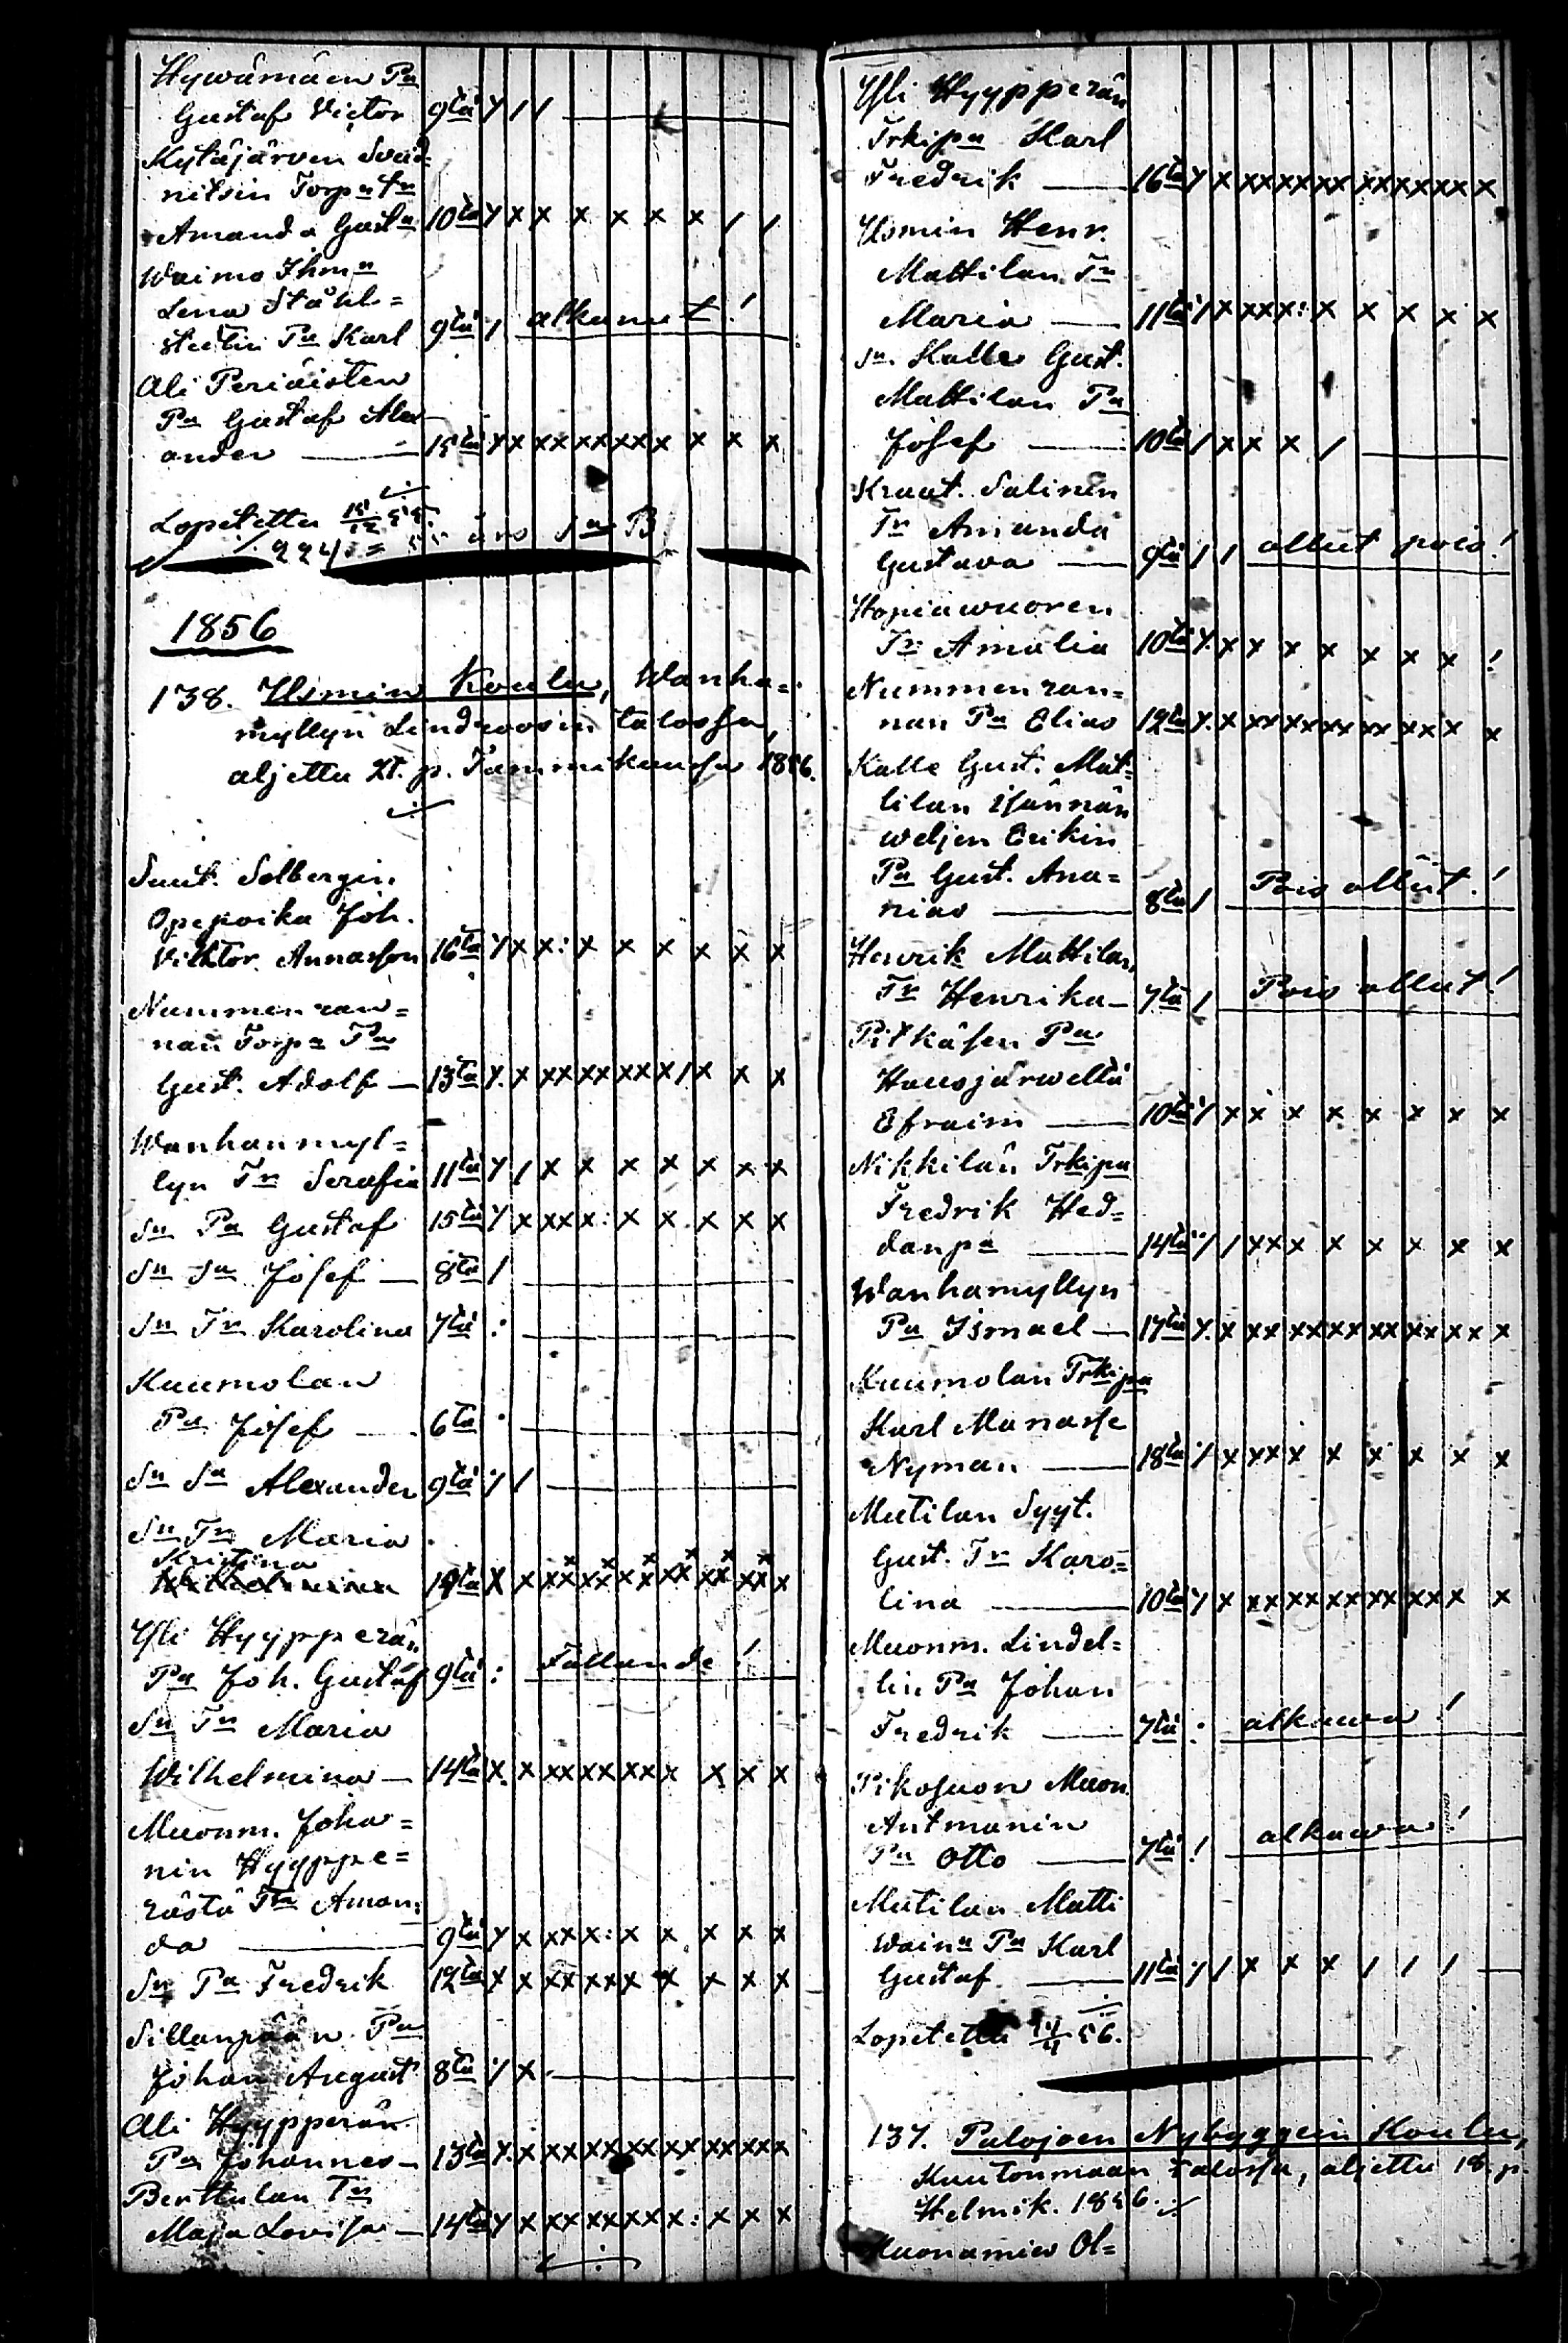 Hywämäen Pa
Gustaf Victor 9tä y / /
Kytäjärven Svad=
nitsin Torpa tr
Amanda Gusta 10tä y x x x x x x / /
Waimo Ihma
Lena Ståhl=
stedtin Pa Karl 9tä / alkanut!
Ali Periäisten
Pa Gustaf Alex
ander 15tä y x xx xxxx x x x x
Lopetettu
1856
138. Usmin Koulu, Wanha=
myllyn Lindroosin talossa,
aljettu 21. p. Tammikuussa 1856.
Suut. Solbergin
Opepoika Joh.
Vihtor Annasson 16ta y x x : x x x x x x
Nummenran=
nan Torpa Pa
Gust. Adolf — 13ta y. x xx xx xx x / x x x
Wanhanmyl=
lyn Tr Serafia 11tä y / x x x x x x x
Sn Pa Gustaf 15tä y x xxx : x x x x x
Sn Sa Josef — 8ta /
Sn Tr Karolina 7tä :
Kuumolan
Pa Josef 6ta .
Sn Sa Alexander 9tä y /
Sn Tr Maria
Kristina
Wilhelmina 14tä X x xx xx x x xx xx xx x
Yli Hyypperän
Pa Joh. Gustaf 9tä : Fallande!
Sn Tr Maria
Wilhelmina — 14ta x. x xx xx xx x x x x
Muonm. Joha=
nin Hyyppe=
rästä Tr Aman=
da 9tä y x xxx : x x x x x
Sn Pa Fredrik 12ta x x xx xx x x x x x
Sillanpään Pa
Johan August 8ta y x
Ali Hyypperän
Pa Johannes — 13ta y. x xx xx xx xx xx xxx
Berttulan Tr
Maja Lovisa — 14ta y x xx xx xx x : x x x
Yli Hyypperän
Trkipa Karl
Fredrik 16ta y x xx xx xx xx xx xx x
Usmin Henr.
Mattilan Tr
Maria 11ta y x xxx : x x x x x
Sn. Kalle Gust.
Mattilan Pa
Josef 10tä / x x x /
Kraat. Salinin
Tr Amanda
Gustava 9tä / / ollut pois!
Hopiawuoren
Tr Amalia 10tä y. x x x x x x x !
Nummenran=
nan Pa Elias 12ta y. x xx xx xx xx xx x x
Kalle Gust. Mat=
tilan isännän
weljen Erikin
Pa Gust. Ana=
nias 8ta / Pois ollut!
Henrik Mattilan
Tr Henrika — 7tä / Pois ollut!
Pitkäsen Pa
Hausjärweltä
Efraim 10tä y x x x x x x x x
Nikkilän Trkipa
Fredrik Hed=
danpa 14tä y / xx x x x x x x
Wanhamyllyn
Pa Ismael — 17ta y. x xx xx xx xx xx x x
Kuumolan Trkipa
Karl Manasse
Nyman 18ta y x xx x x x x x x
Mutilan Syyt.
Gust. Tr Karo=
lina 10tä y x xx xx xx xx xx x x
Muonm. Lindel=
lin Pa Johan
Fredrik 7tä . alkawa!
Pikosuon Muon.
Antmanin
Pa Otto 7tä ! alkawa!
Mutilan Matti
Waina Pa Karl
Gustaf 11tä y / x x x / / /
Lopetettu 14/4 56.
137. Palojoen Nybyggein Koulu,
Kuutonmaan talossa, aljettu 18. p.
Helmik. 1856.
Muonamies Ol=